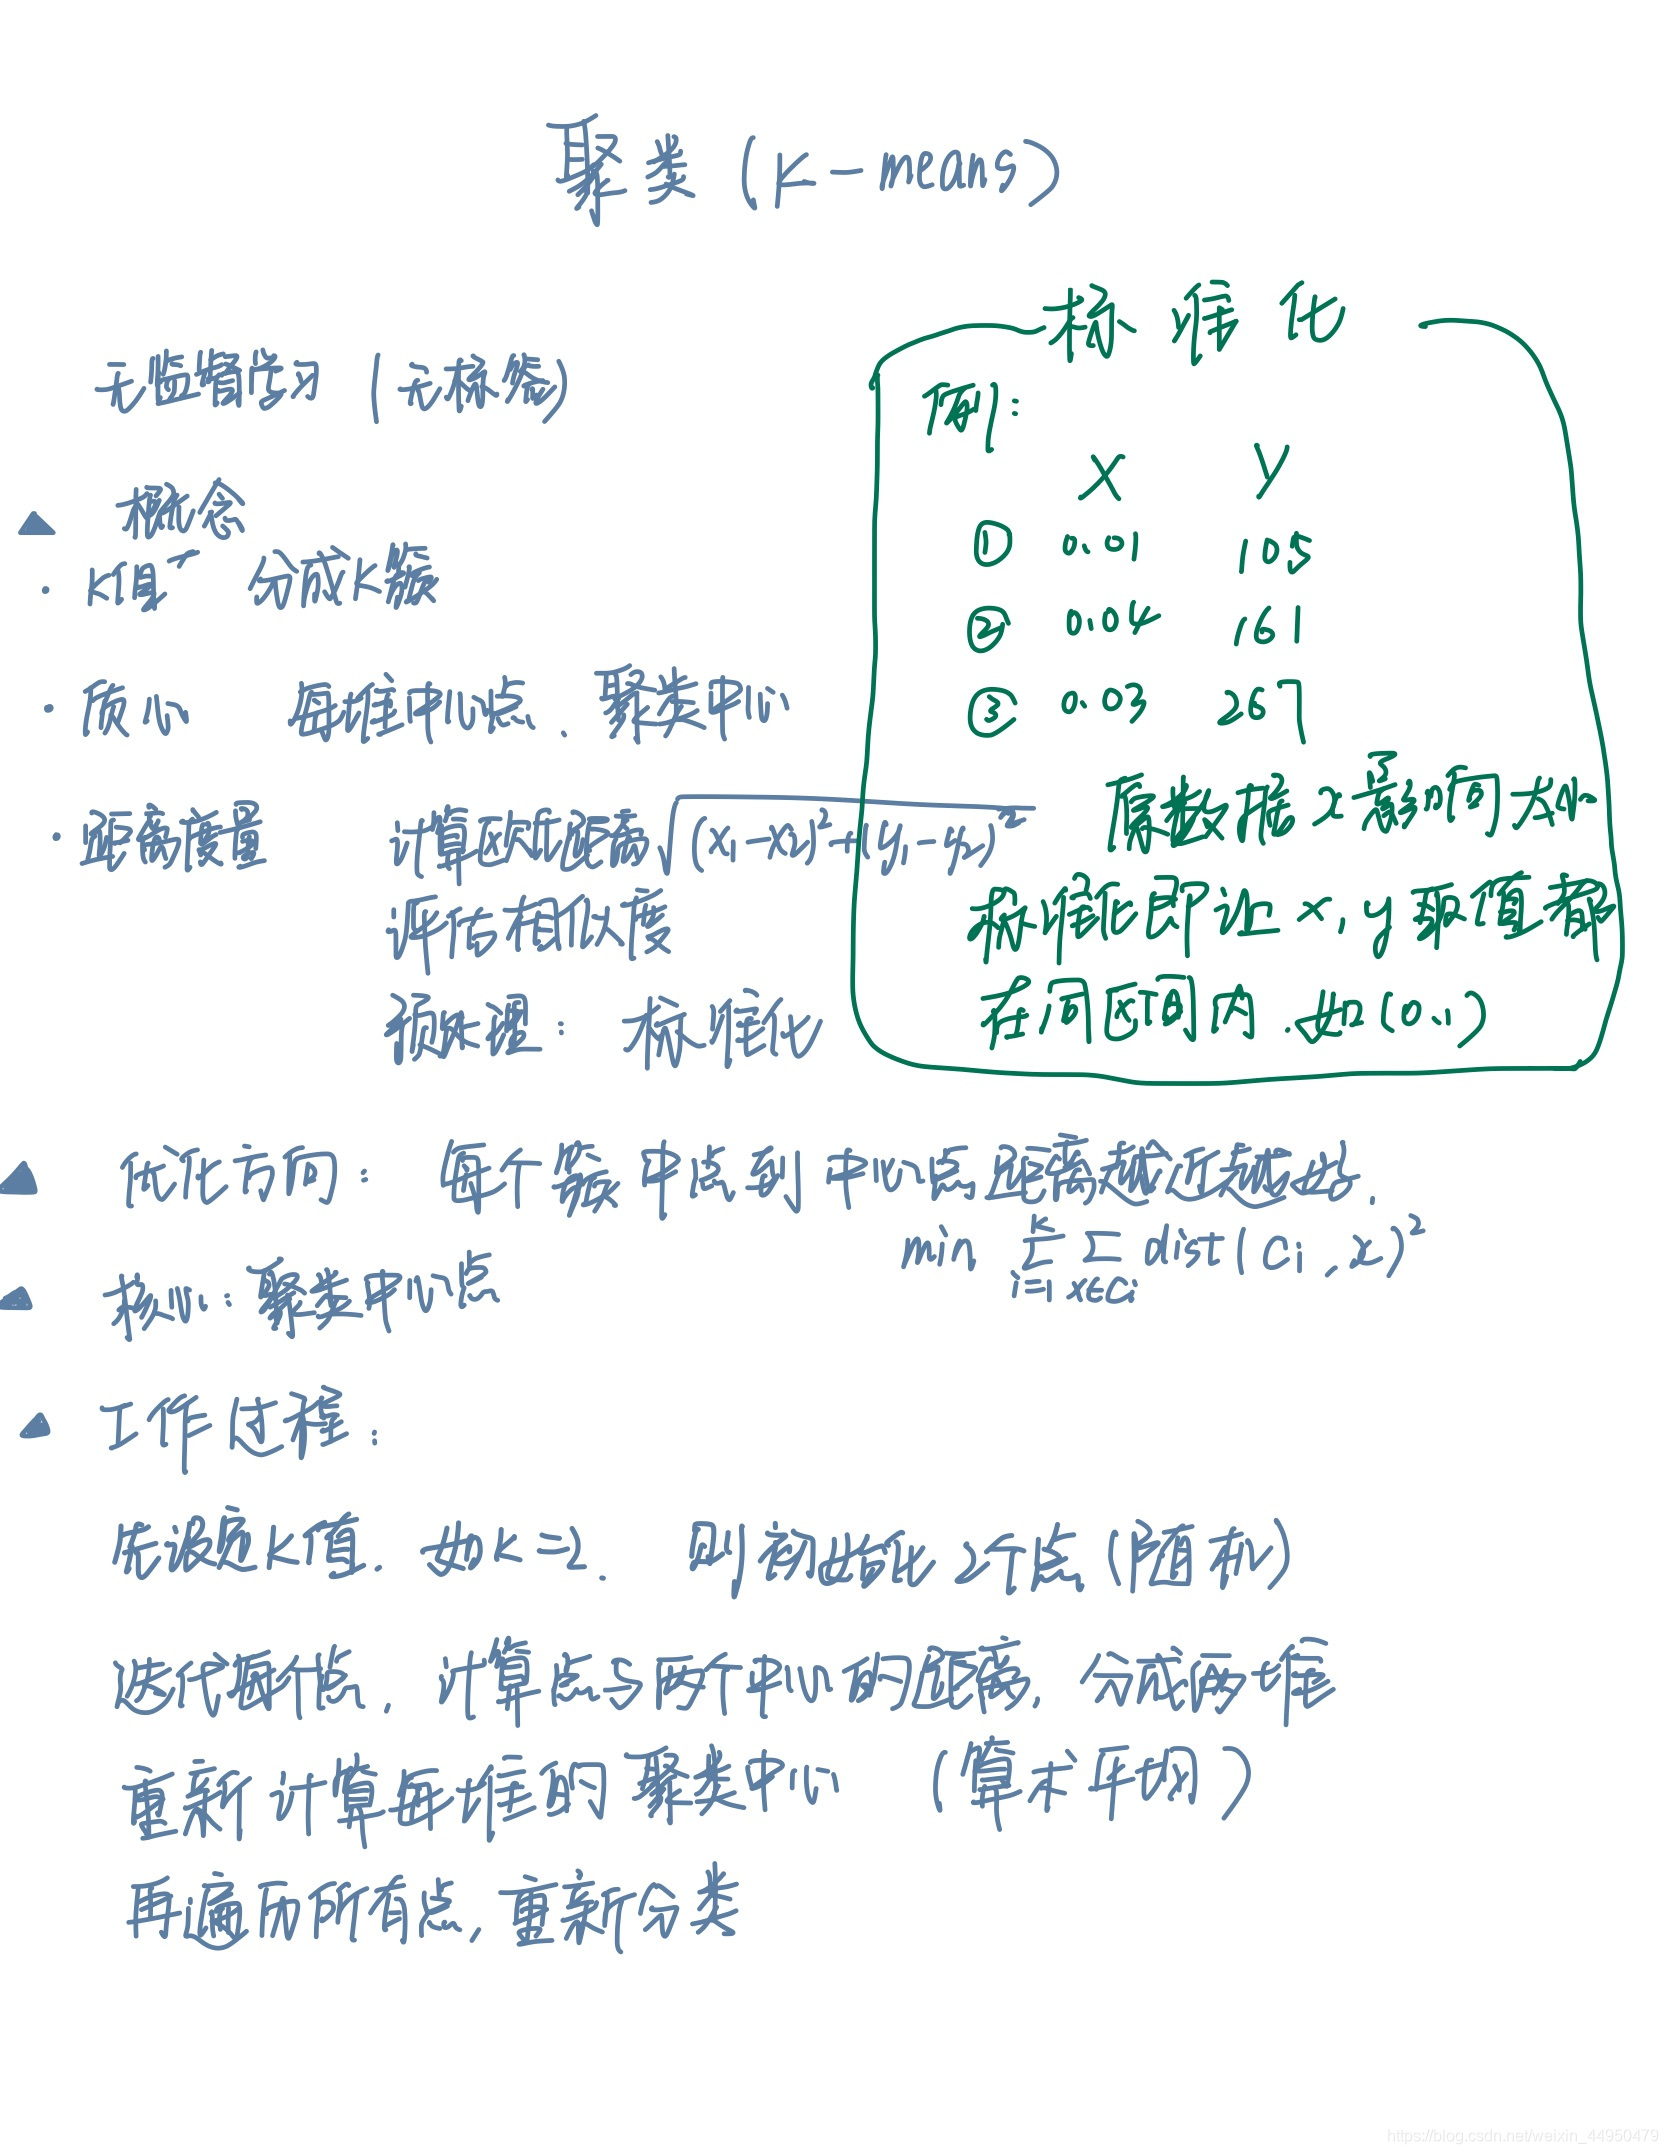 聚类(K-means)
无监督学习(无标签)
▲ 概念
· K值 分成K簇
· 质心 每堆中心点、聚类中心
· 距离度量 计算欧氏距离√((x₁-x₂)²+(y₁-y₂)²)
评估相似度
预处理：标准化
标准化
例：
X Y
① 0.01 105
② 0.04 161
③ 0.03 267
原数据x影响太小
标准化即让x,y取值都
在同区间内.如(0,1)
▲ 优化方向：每个簇中点到中心点距离越近越好.
min Σ_{i=1}^{K} Σ_{x∈Ci} dist(Ci,x)²
▲ 核心：聚类中心点
▲ 工作过程：
先设定K值.如K=2. 则初始化2个点(随机)
迭代每个点,计算点与两个中心的距离,分成两堆
重新计算每堆的聚类中心 (算术平均)
再遍历所有点,重新分类
https://blog.csdn.net/weixin_44950479